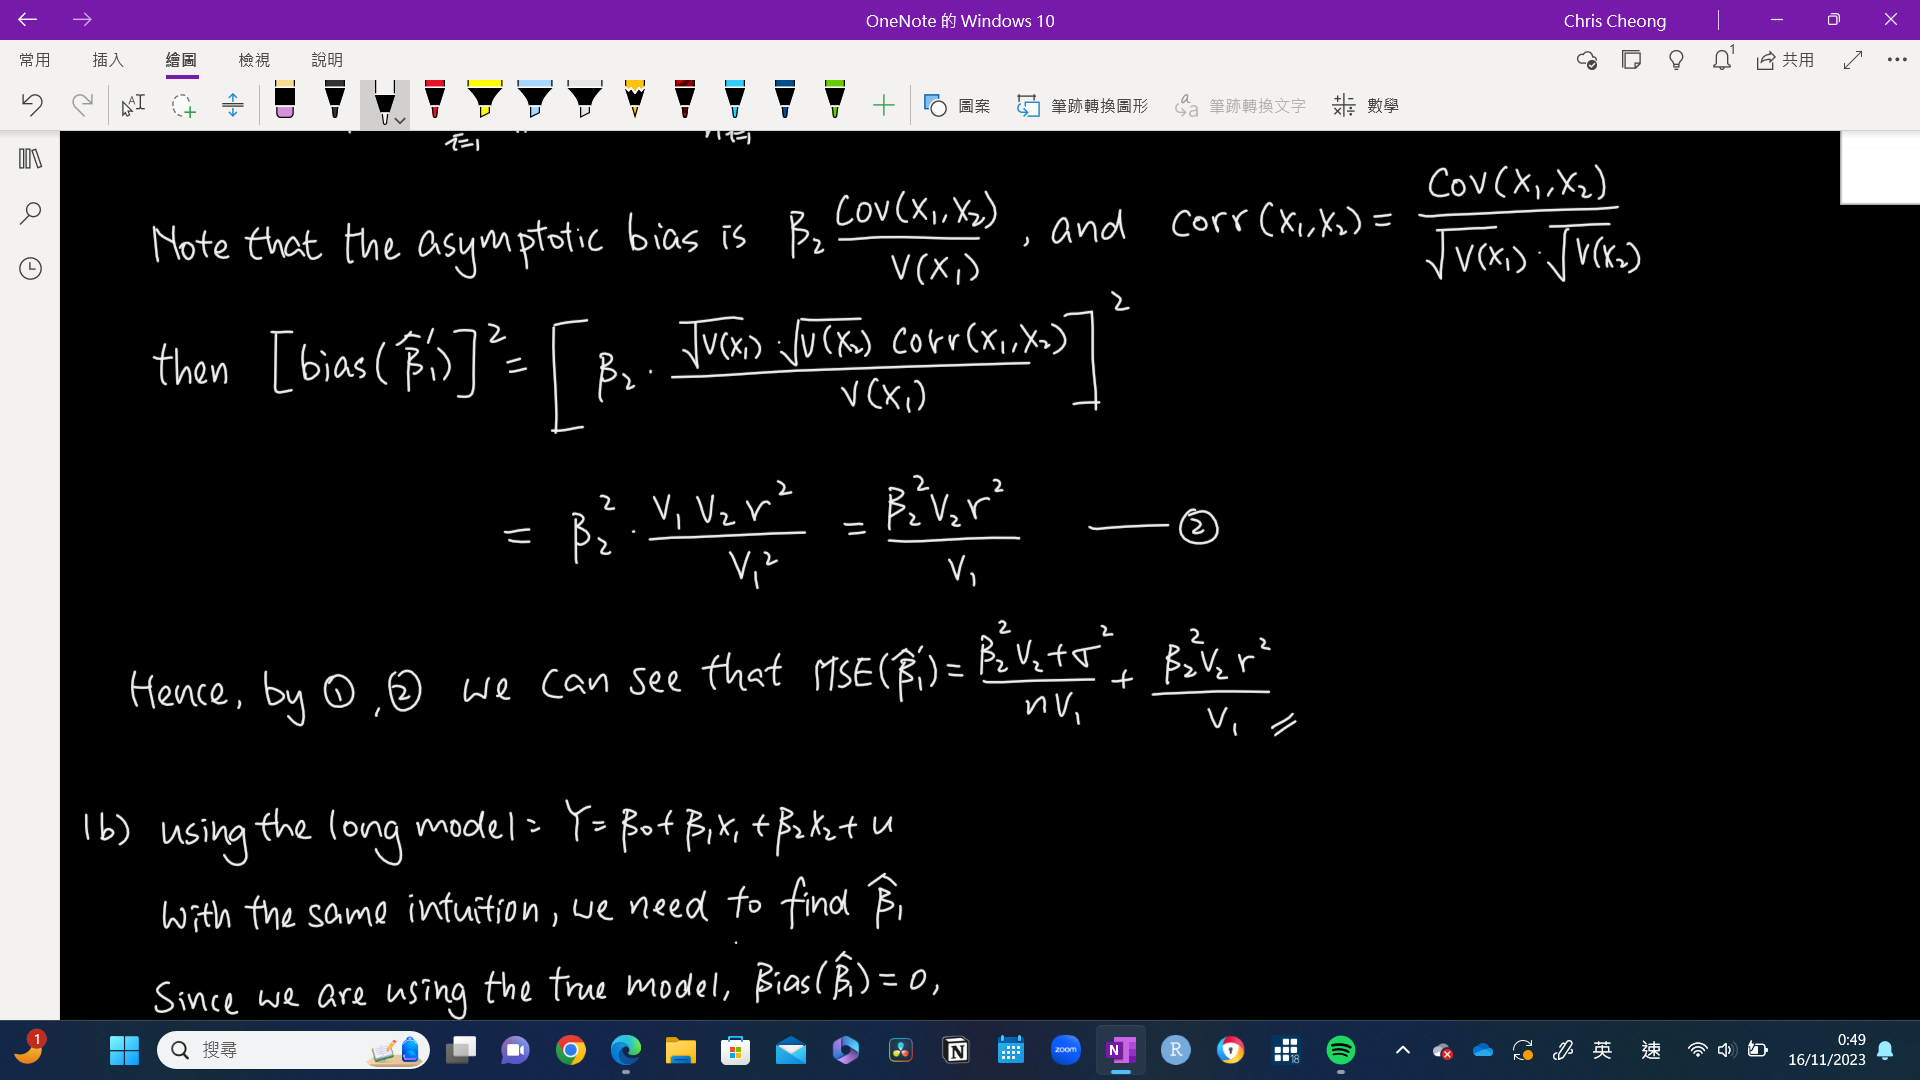 OneNote 的 Windows 10
Chris Cheong
常用 插入 繪圖 檢視 說明
1
共用
圖案 筆跡轉換圖形 筆跡轉換文字 數學
Note that the asymptotic bias is β₂ Cov(X₁,X₂)/V(X₁), and Corr(X₁,X₂) = Cov(X₁,X₂)/(√V(X₁)·√V(X₂))
then [bias(β̂₁′)]² = [β₂ · √V(X₁)·√V(X₂) Corr(X₁,X₂)/V(X₁)]²
= β₂² · V₁V₂r²/V₁² = β₂²V₂r²/V₁ —— ②
Hence, by ①,② we can see that MSE(β̂₁′) = (β₂²V₂+σ²)/(nV₁) + β₂²V₂r²/V₁ //
1b) using the long model: Y = β₀+β₁X₁+β₂X₂+u
with the same intuition, we need to find β̂₁
Since we are using the true model, Bias(β̂₁) = 0,
1
搜尋
zoom
N
R
18
英
速
0:49
16/11/2023